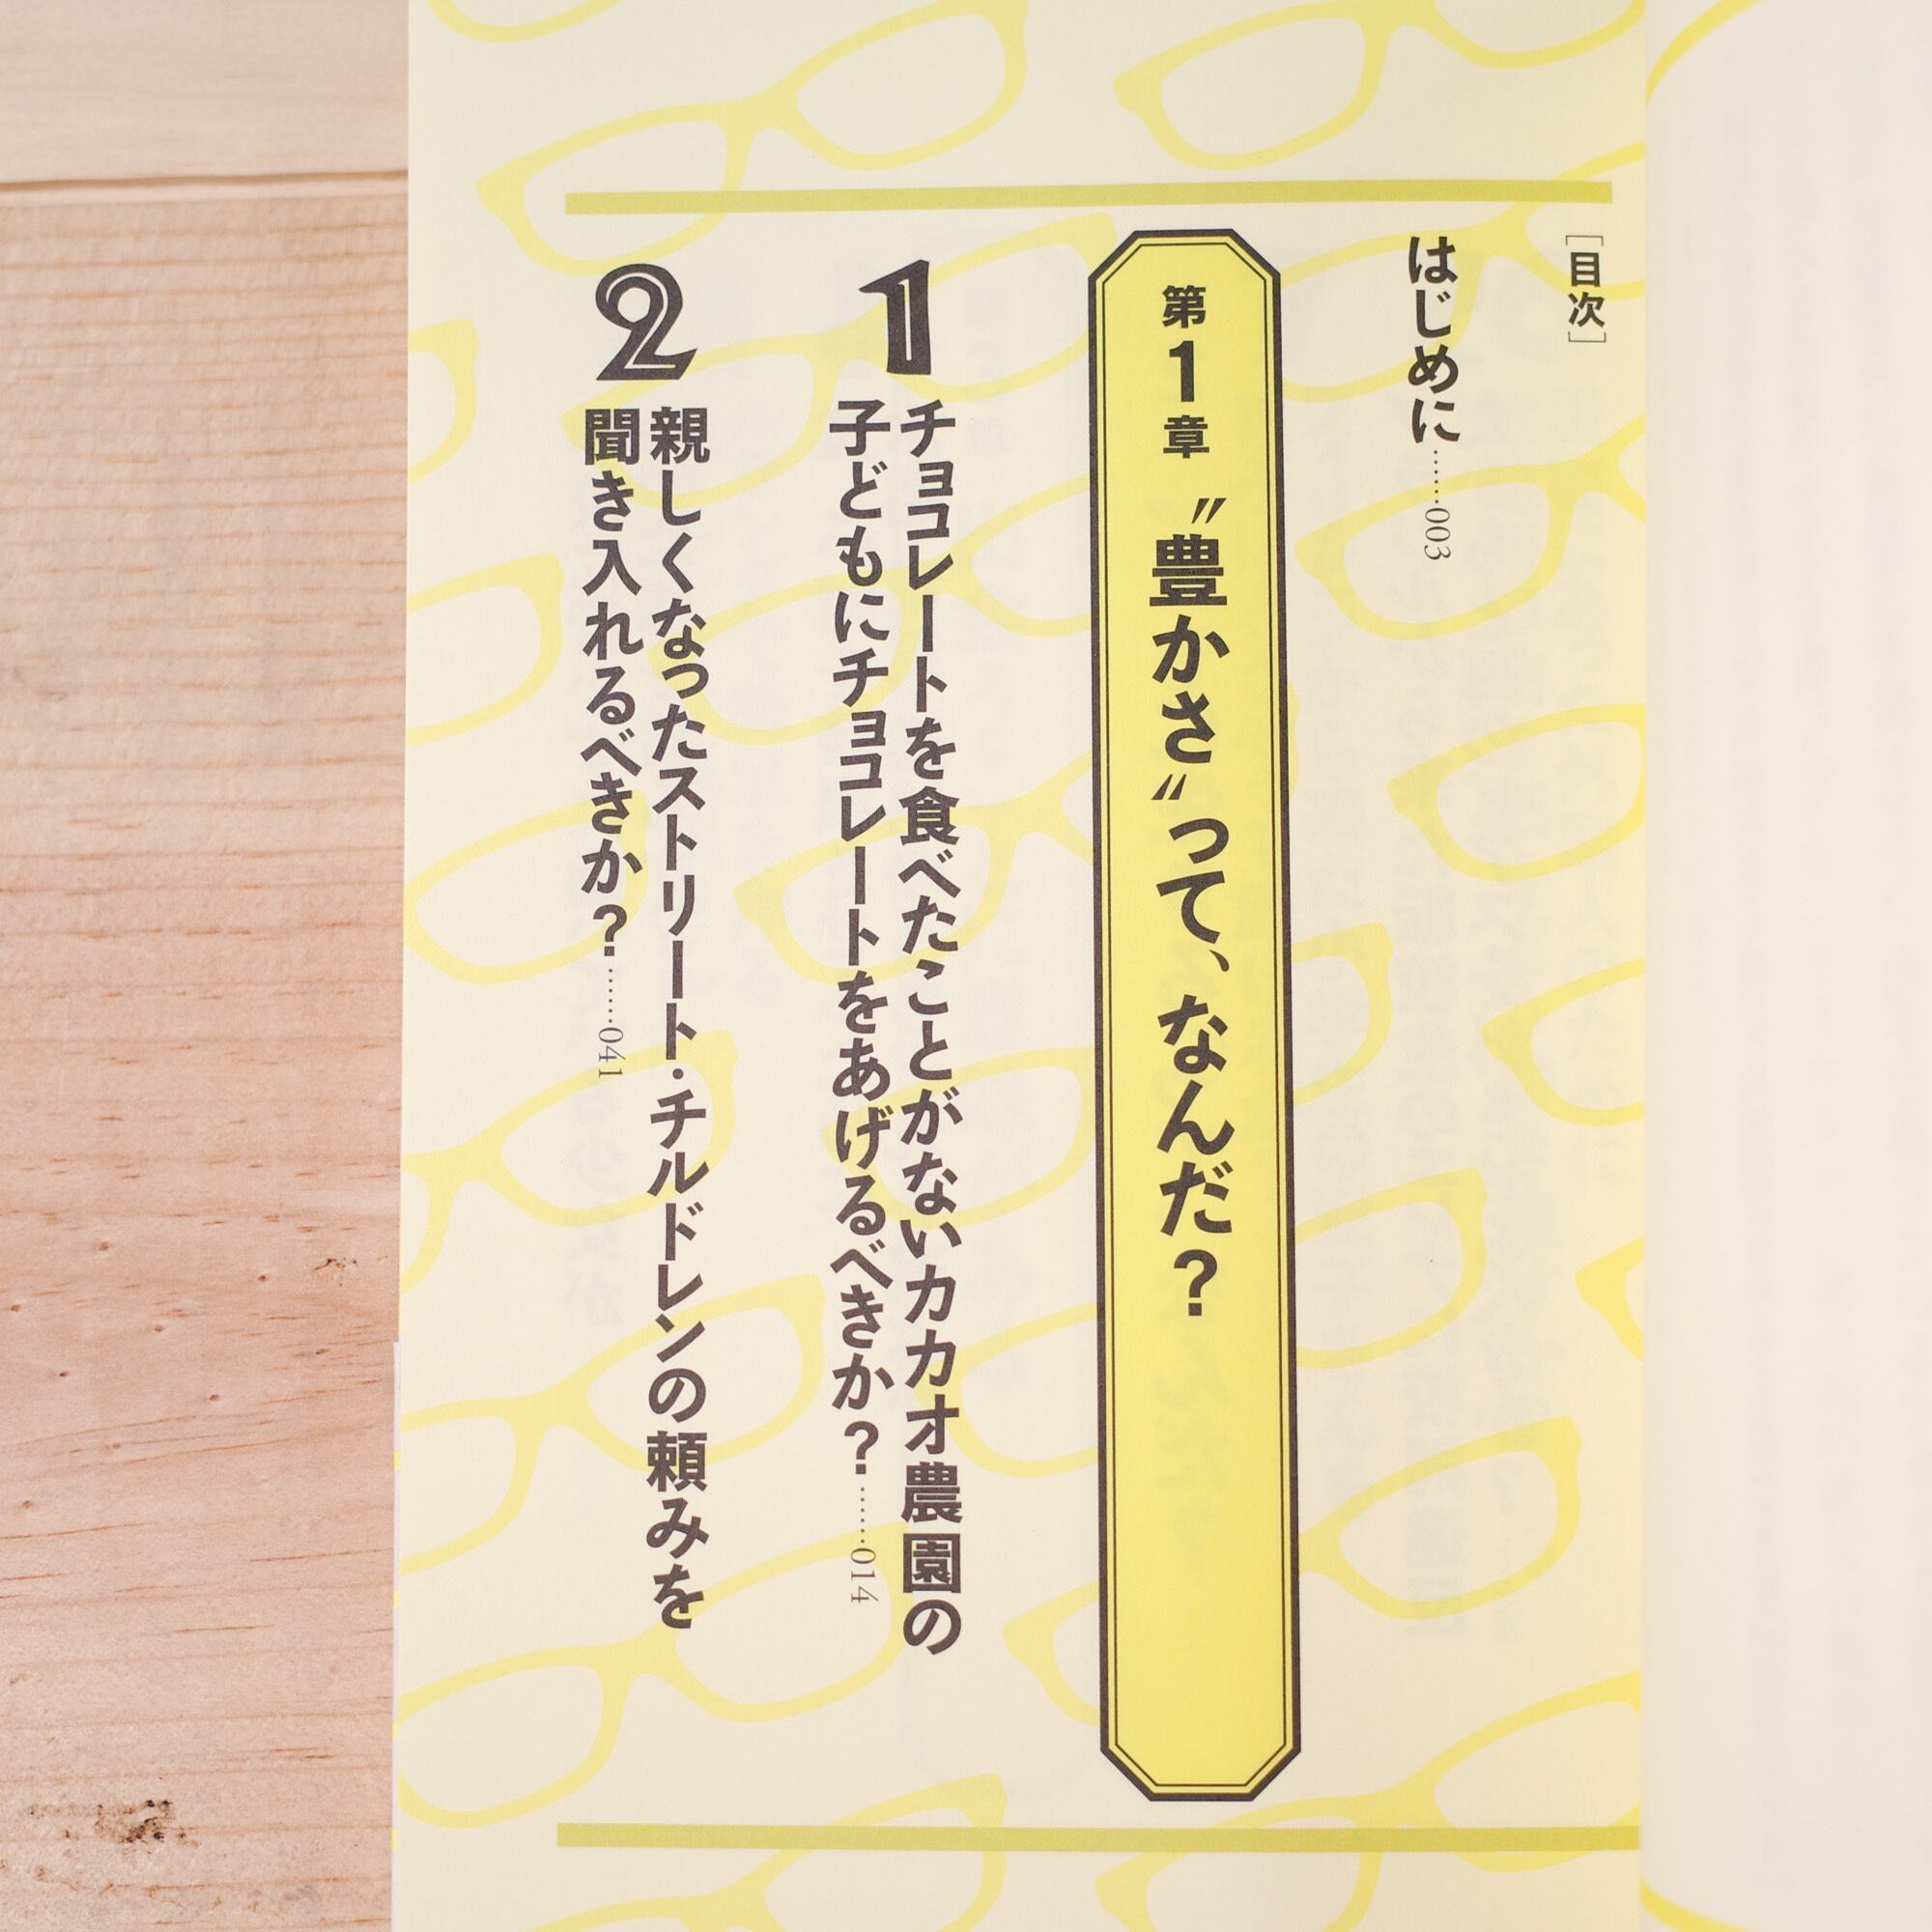 ［目次］
はじめに……003
第1章 〝豊かさ〟って、なんだ？
1
チョコレートを食べたことがないカカオ農園の
子どもにチョコレートをあげるべきか？……014
2
親しくなったストリート・チルドレンの頼みを
聞き入れるべきか？……041